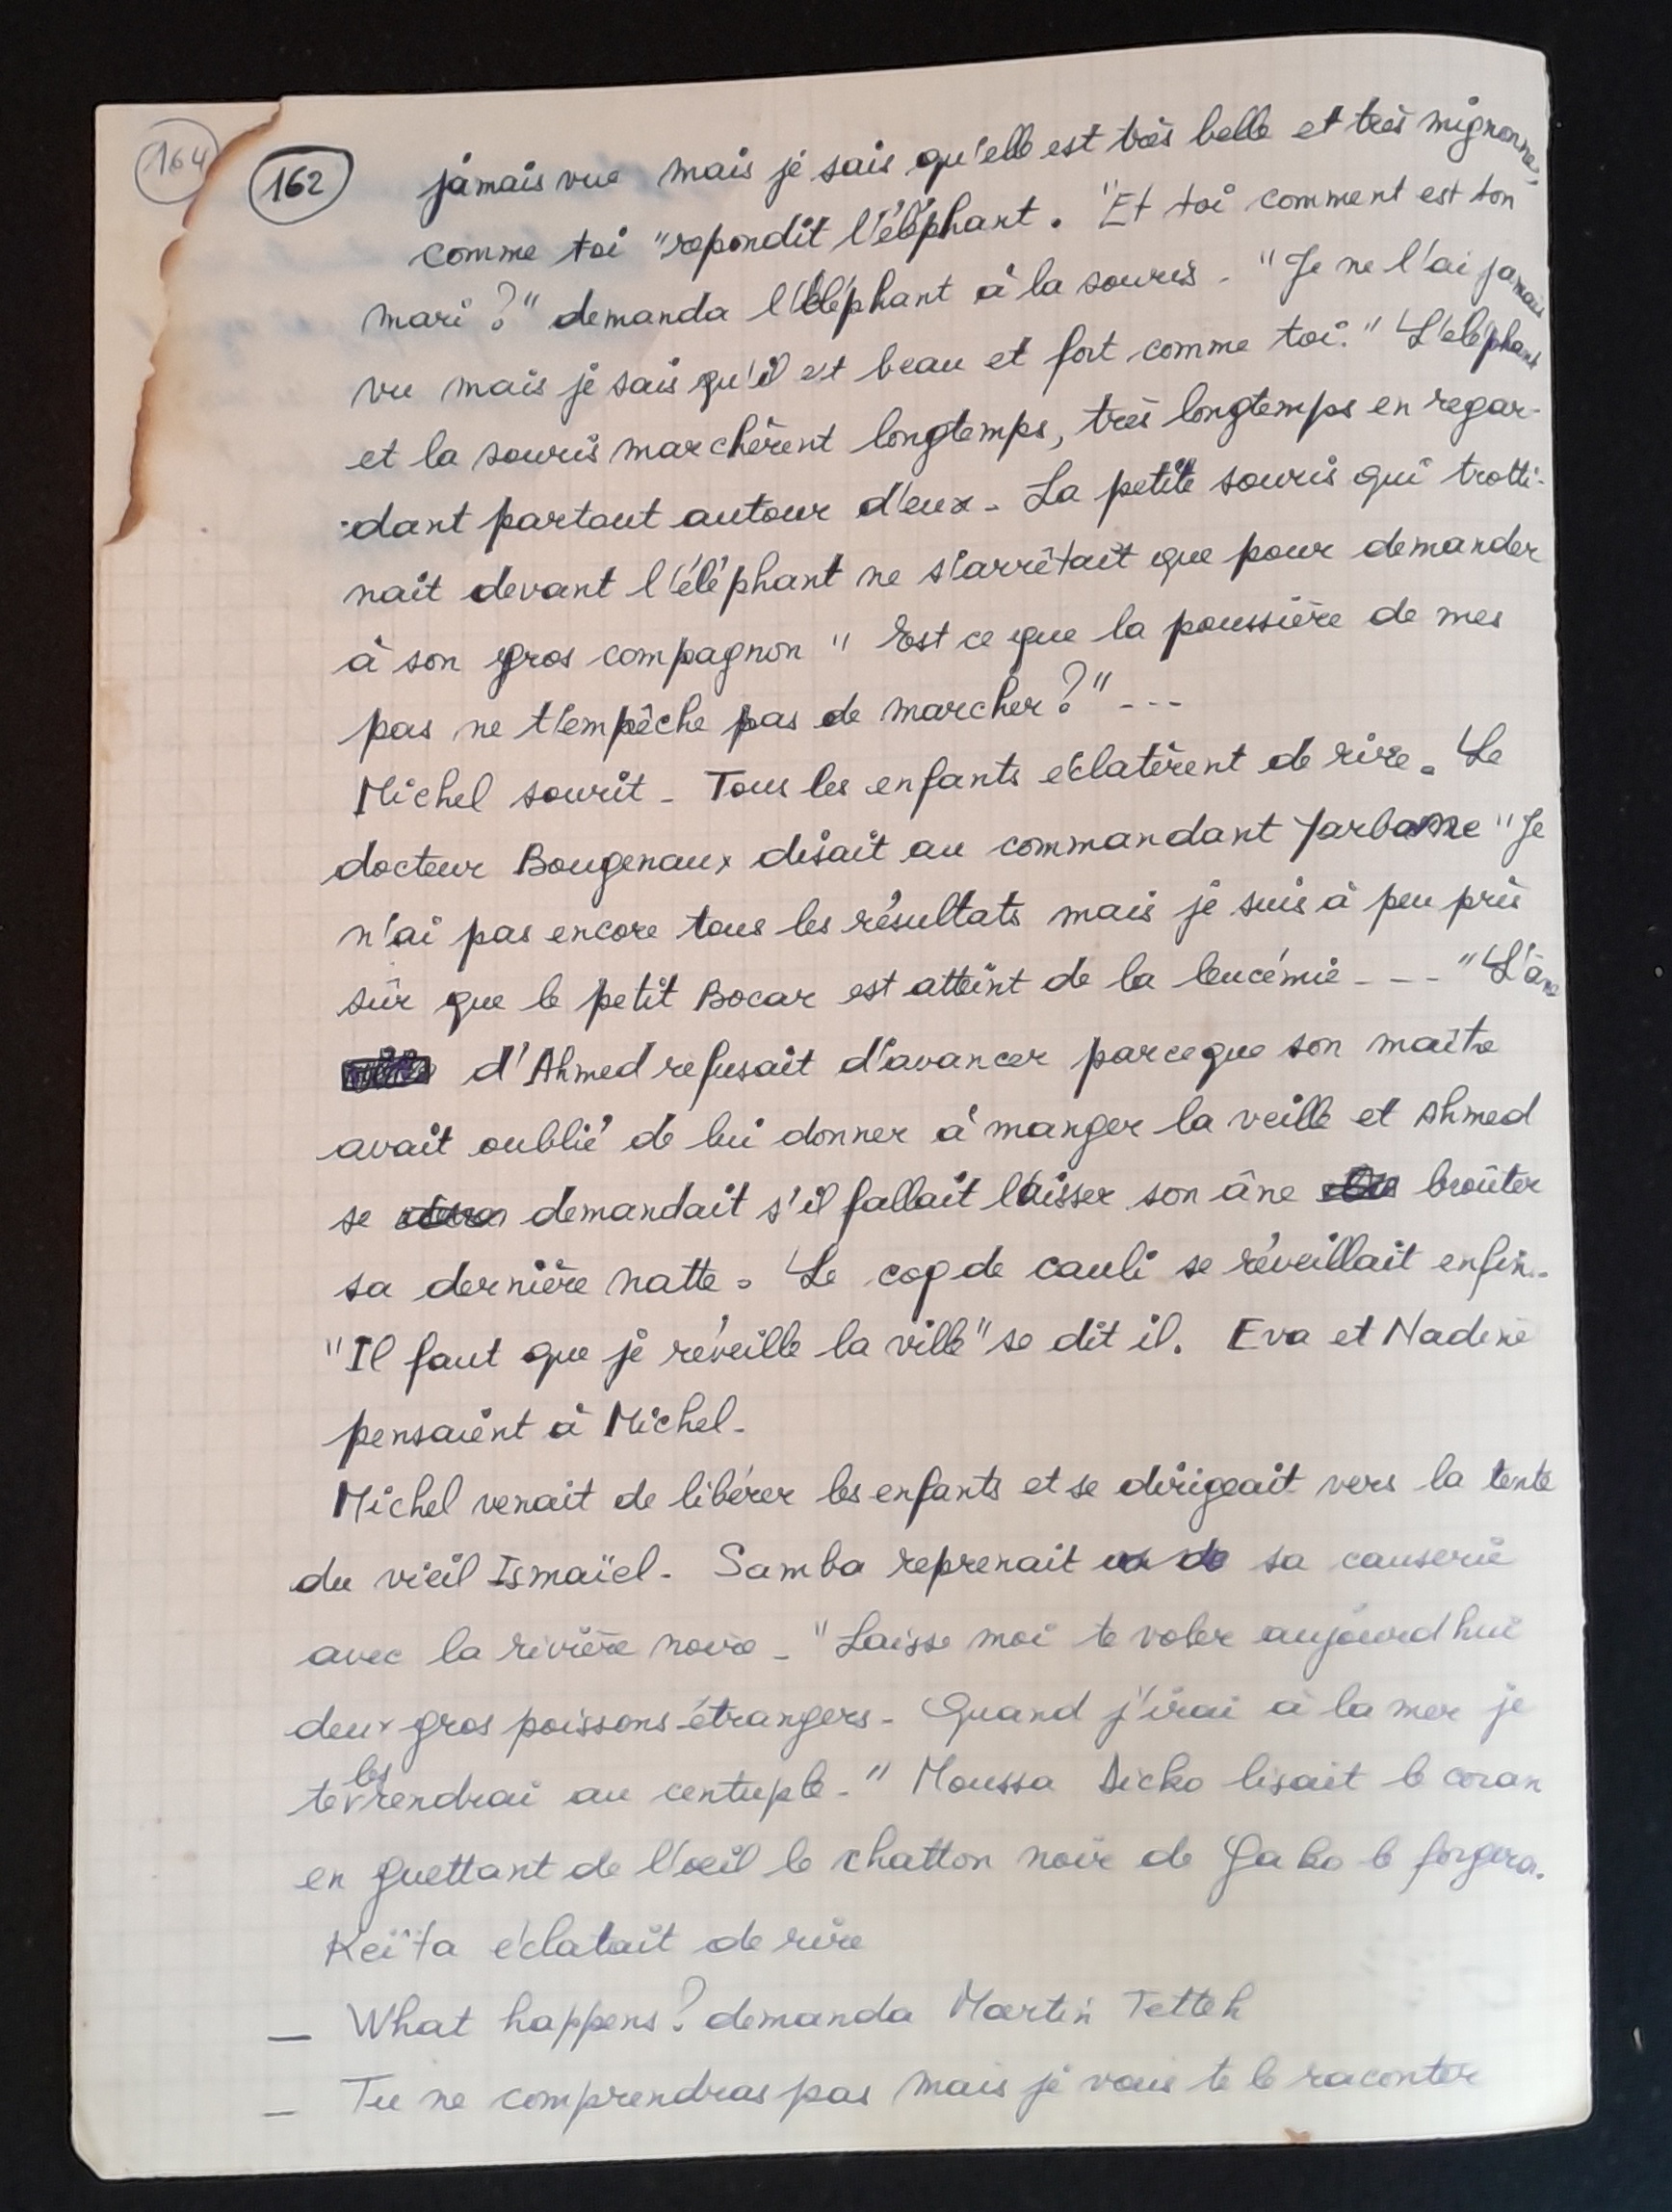 164
162
jamais vue mais je sais qu'elle est très belle et très mignonne,
comme toi "repondit l'éléphant. "Et toi comment est ton
mari ?" demanda l'éléphant à la souris - "Je ne l'ai jamais
vu mais je sais qu'il est beau et fort comme toi." L'eléphant
et la souris marchèrent longtemps, très longtemps en regar-
-dant partout autour d'eux - La petite souris qui trotti-
nait devant l'éléphant ne s'arrêtait que pour demander
à son gros compagnon " Est ce que la poussière de mes
pas ne t'empêche pas de marcher ?" ---
Michel sourit - Tous les enfants éclatèrent de rire. Le
docteur Bougenaux disait au commandant "Je
n'ai pas encore tous les résultats mais je suis à peu près
sûr que le petit Bocar est atteint de la leucémie --- " L'âne
d'Ahmed refusait d'avancer parceque son maître
avait oublié de lui donner à manger la veille et Ahmed
se demandait s'il fallait laisser son âne broûter
sa dernière natte. Le coq de cauli se réveillait enfin.
"Il faut que je réveille la ville" se dit il. Eva et Nadine
pensaient à Michel.
Michel venait de libérer les enfants et se dirigeait vers la tente
du vieil Ismaïel - Samba reprenait sa causerie
avec la rivière noire - "Laisse moi te voler aujourd'hui
deux gros poissons étrangers - Quand j'irai à la mer je
te les rendrai au centuple - " Moussa Dicko lisait le coran
en guettant de l'oeil le chatton noir de Gako le forgeron.
Keïta éclatait de rire
— What happens ? demanda Martin Tetteh
— Tu ne comprendras pas mais je vais te le raconter